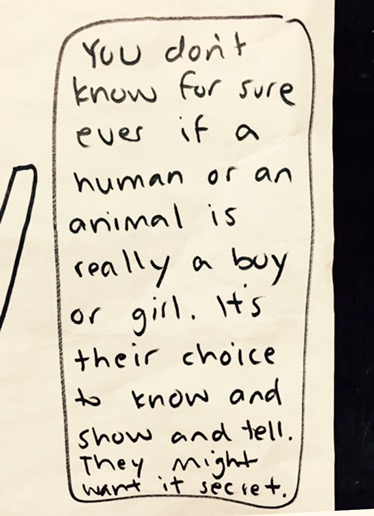 You don't
know for sure
ever if a
human or an
animal is
really a boy
or girl. It's
their choice
to know and
show and tell.
They might
want it secret.